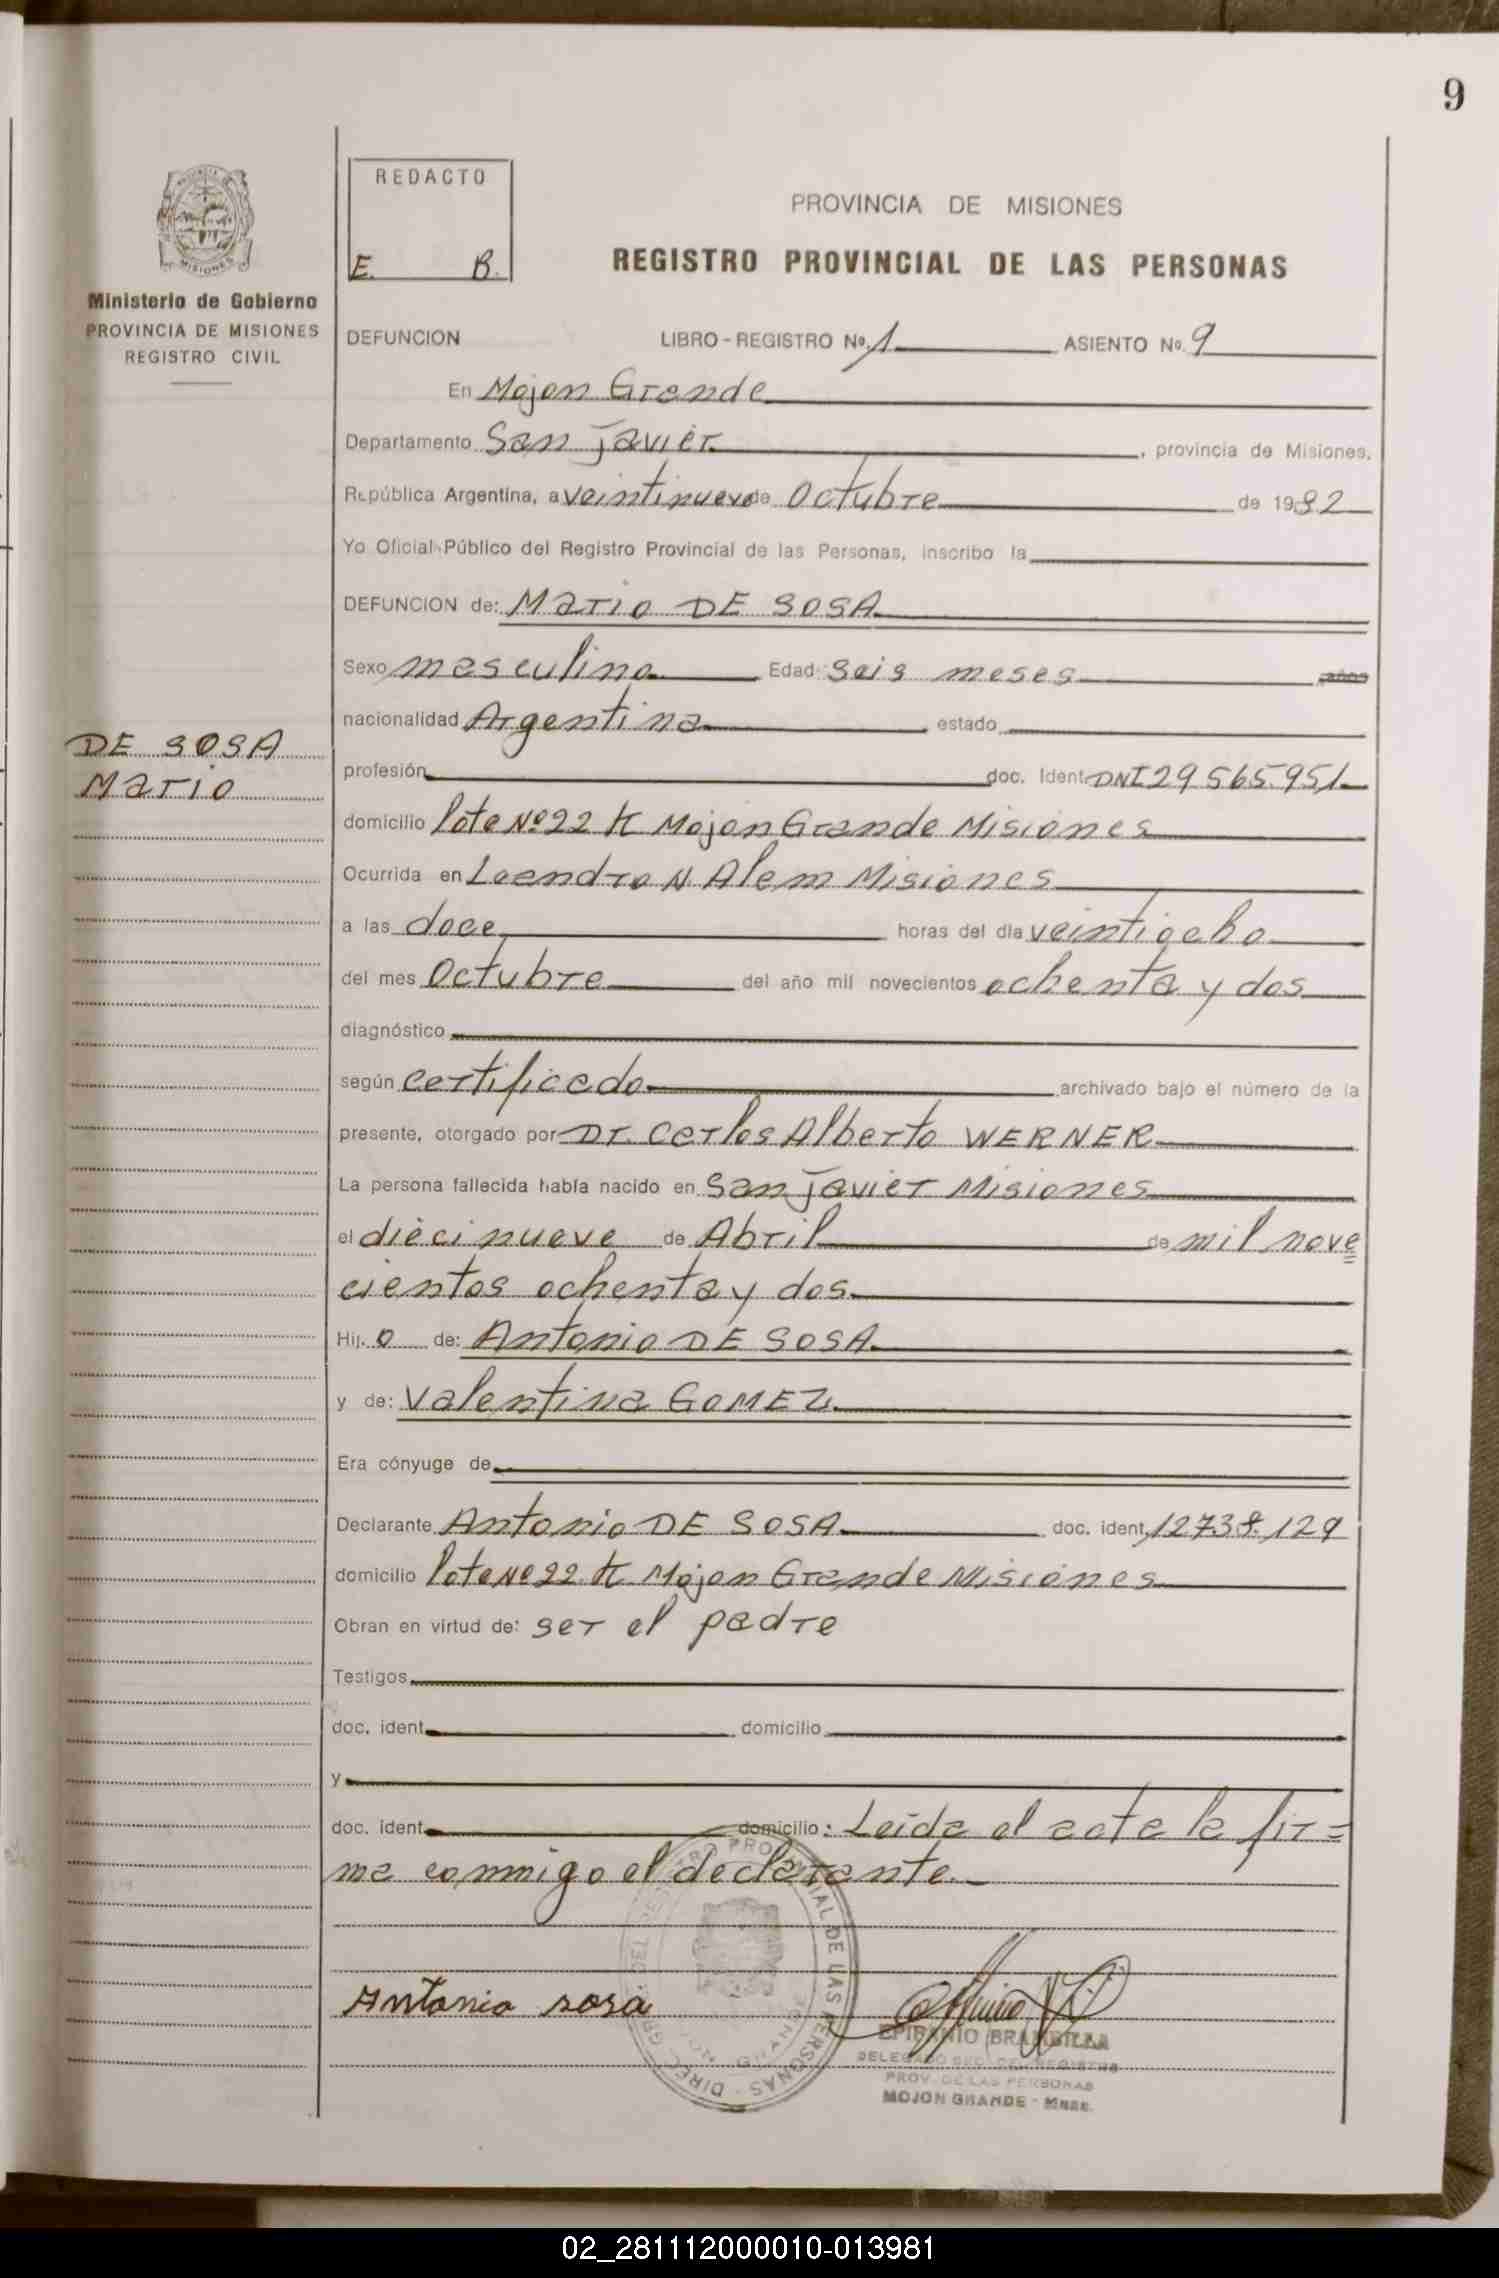 9
REDACTO
E. B.
PROVINCIA DE MISIONES
REGISTRO PROVINCIAL DE LAS PERSONAS
MISIONES
Ministerio de Gobierno
PROVINCIA DE MISIONES
REGISTRO CIVIL
DEFUNCION LIBRO - REGISTRO No. 1 ASIENTO No. 9
En Mojon Grande
Departamento San Javier, provincia de Misiones,
República Argentina, a veintinueve de Octubre de 1982
Yo Oficial Público del Registro Provincial de las Personas, inscribo la
DEFUNCION de: Mario DE SOSA
Sexo masculino Edad: seis meses años
nacionalidad Argentina estado
DE SOSA
Mario
profesión doc. Ident. DNI 29 565.951
domicilio lote Nº 22 K Mojon Grande Misiones
Ocurrida en Leandro N. Alem Misiones
a las doce horas del día veintiocho
del mes Octubre del año mil novecientos ochenta y dos
diagnóstico
según certificado archivado bajo el número de la
presente, otorgado por Dr. Carlos Alberto WERNER
La persona fallecida había nacido en San Javier Misiones
el diecinueve de Abril de mil nove
cientos ochenta y dos
Hij. o de: Antonio DE SOSA
y de: Valentina GOMEZ
Era cónyuge de
Declarante Antonio DE SOSA doc. ident.
domicilio lote Nº 22 K Mojon Grande Misiones
Obran en virtud de: ser el padre
Testigos
doc. ident. domicilio
y
doc. ident. domicilio: Leida el acta la fir=
ma conmigo el declarante.
Antonio sosa
EPIFANIO BRAMBILLA
DELEGADO SEC. DEL REGISTRO
PROV. DE LAS PERSONAS
MOJON GRANDE - Mnes.
02_281112000010-013981